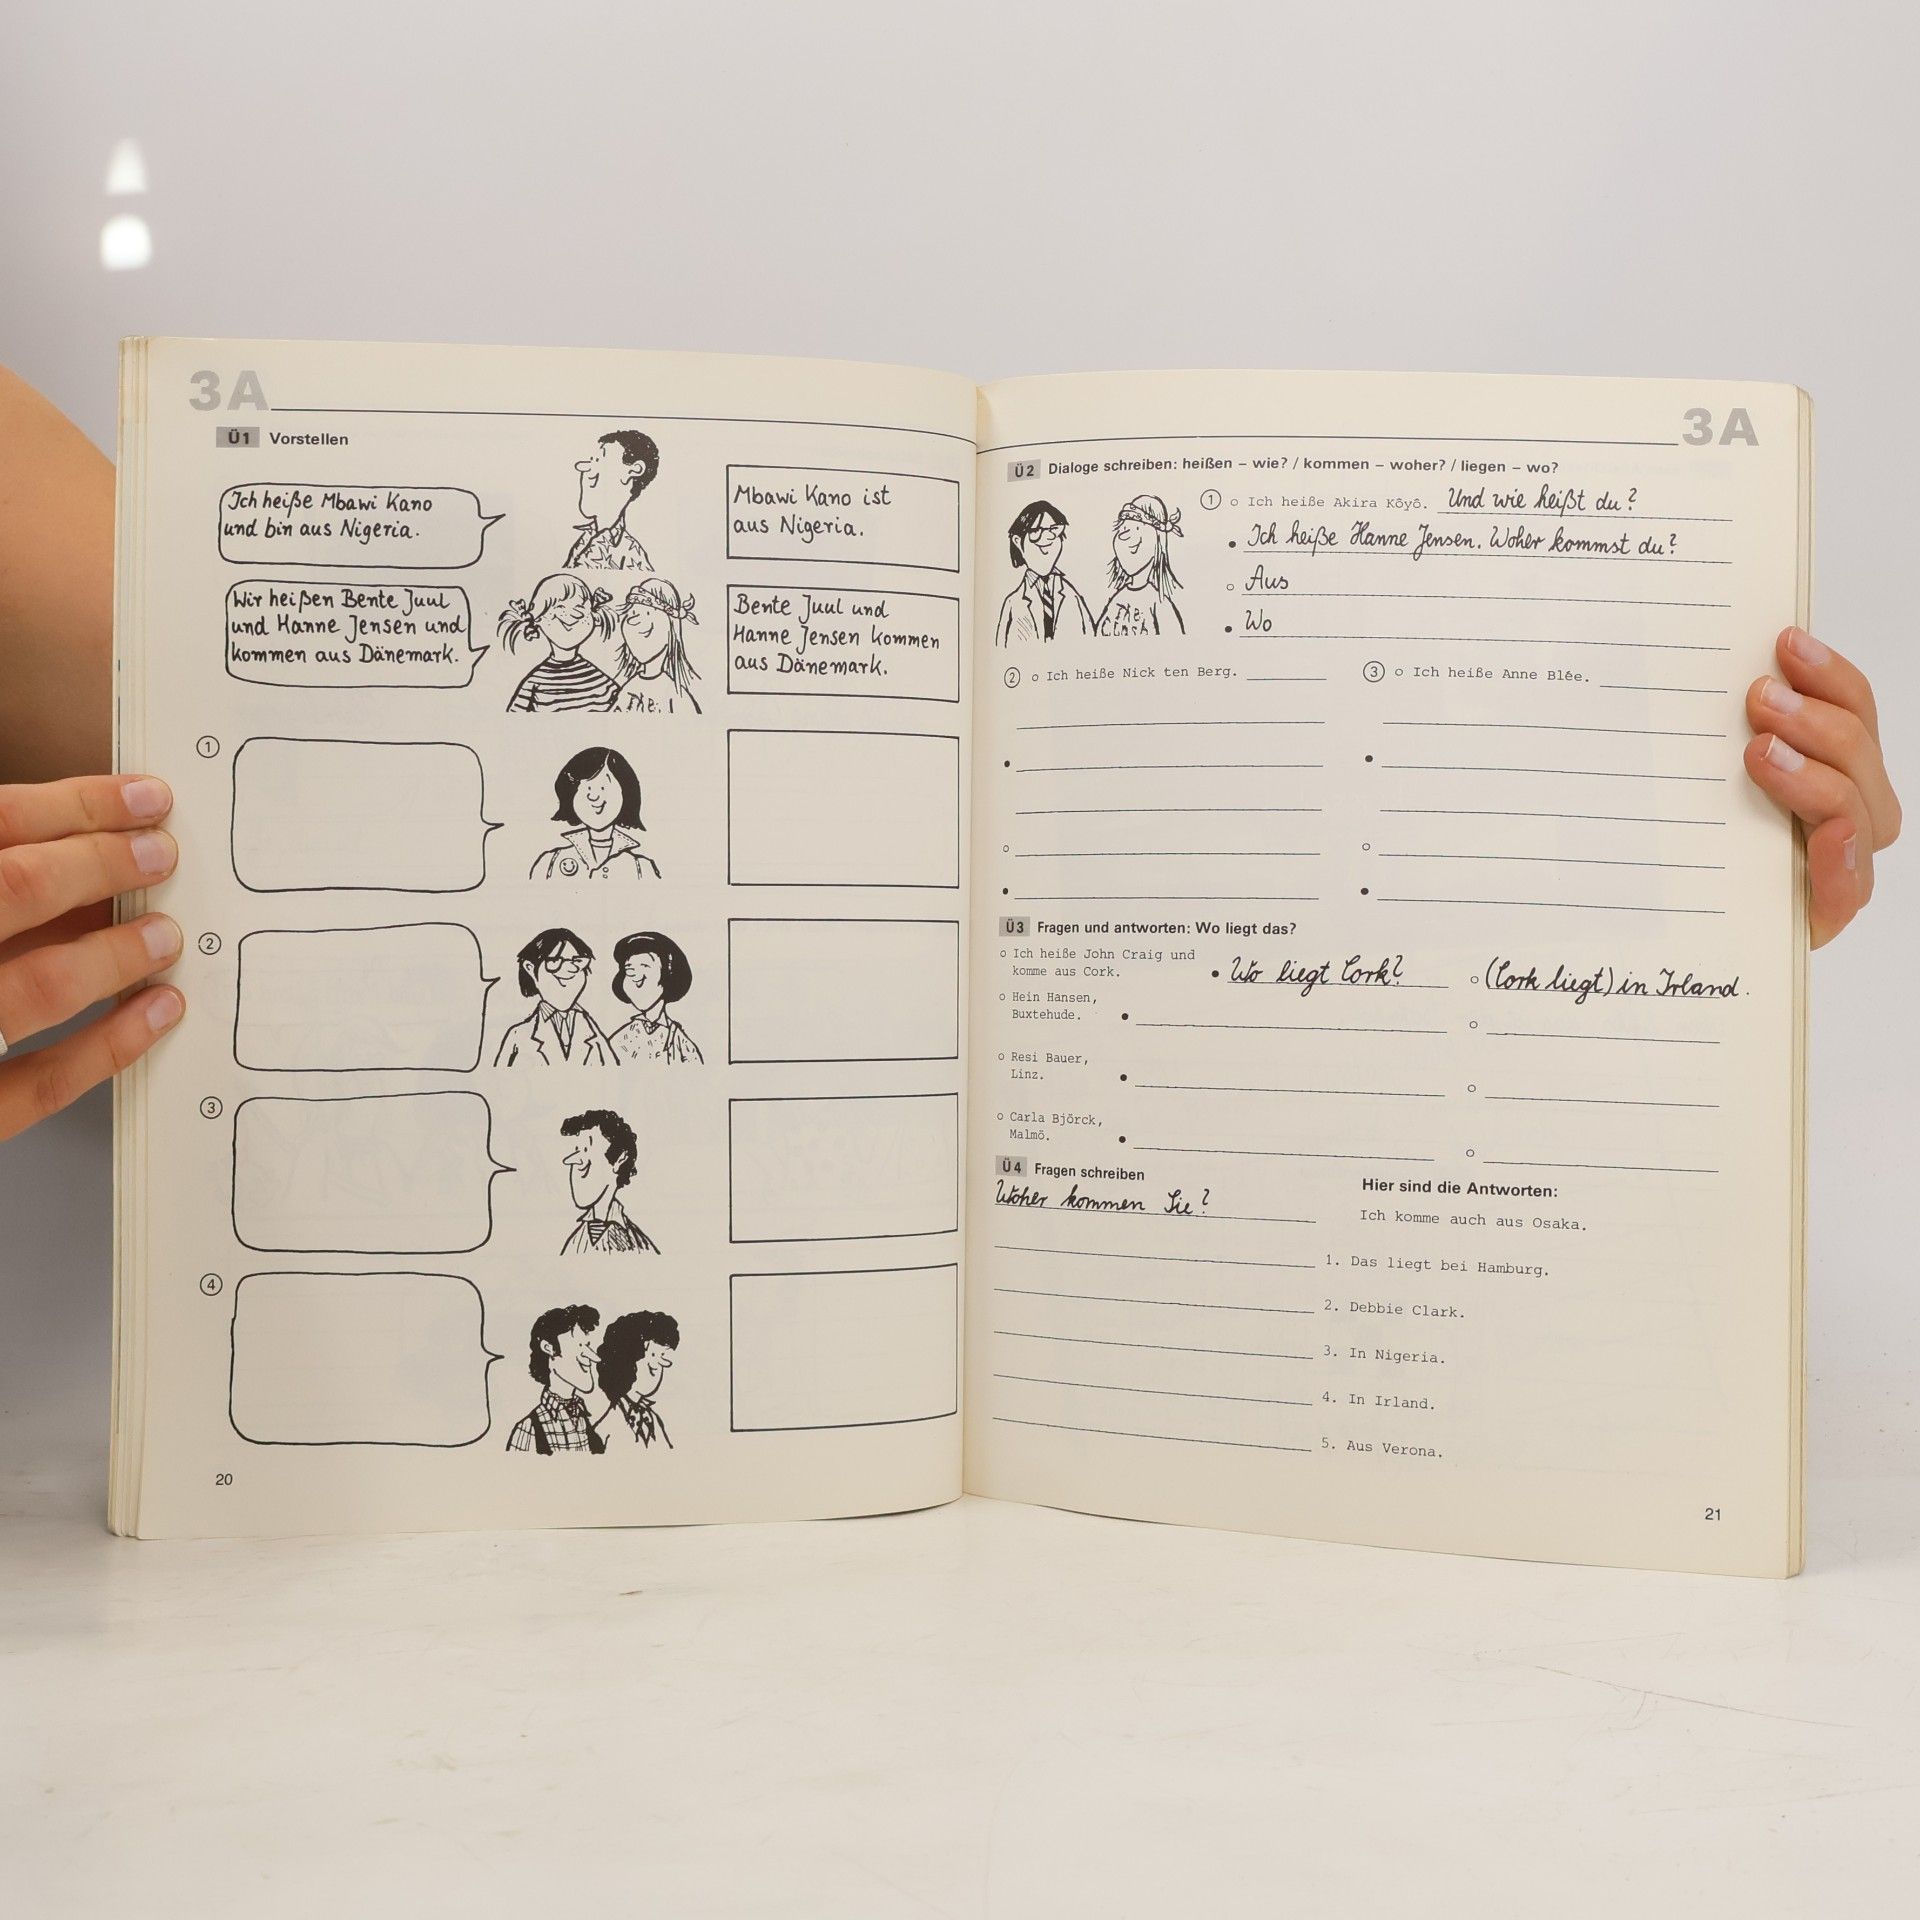 3A
Ü1 Vorstellen
Ich heiße Mbawi Kano
und bin aus Nigeria.
Mbawi Kano ist
aus Nigeria.
Wir heißen Bente Juul
und Hanne Jensen und
kommen aus Dänemark.
Bente Juul und
Hanne Jensen kommen
aus Dänemark.
The
1
2
3
4
20
3A
Ü2 Dialoge schreiben: heißen – wie? / kommen – woher? / liegen – wo?
1 o Ich heiße Akira Kôyô. Und wie heißt du?
• Ich heiße Hanne Jensen. Woher kommst du?
o Aus
• Wo
The
Clash
2 o Ich heiße Nick ten Berg.
•
o
•
3 o Ich heiße Anne Blée.
•
o
•
Ü3 Fragen und antworten: Wo liegt das?
o Ich heiße John Craig und
komme aus Cork.
• Wo liegt Cork?
o (Cork liegt) in Irland.
o Hein Hansen,
Buxtehude. • o
o Resi Bauer,
Linz. • o
o Carla Björck,
Malmö. • o
Ü4 Fragen schreiben
Hier sind die Antworten:
Woher kommen Sie?
Ich komme auch aus Osaka.
1. Das liegt bei Hamburg.
2. Debbie Clark.
3. In Nigeria.
4. In Irland.
5. Aus Verona.
21